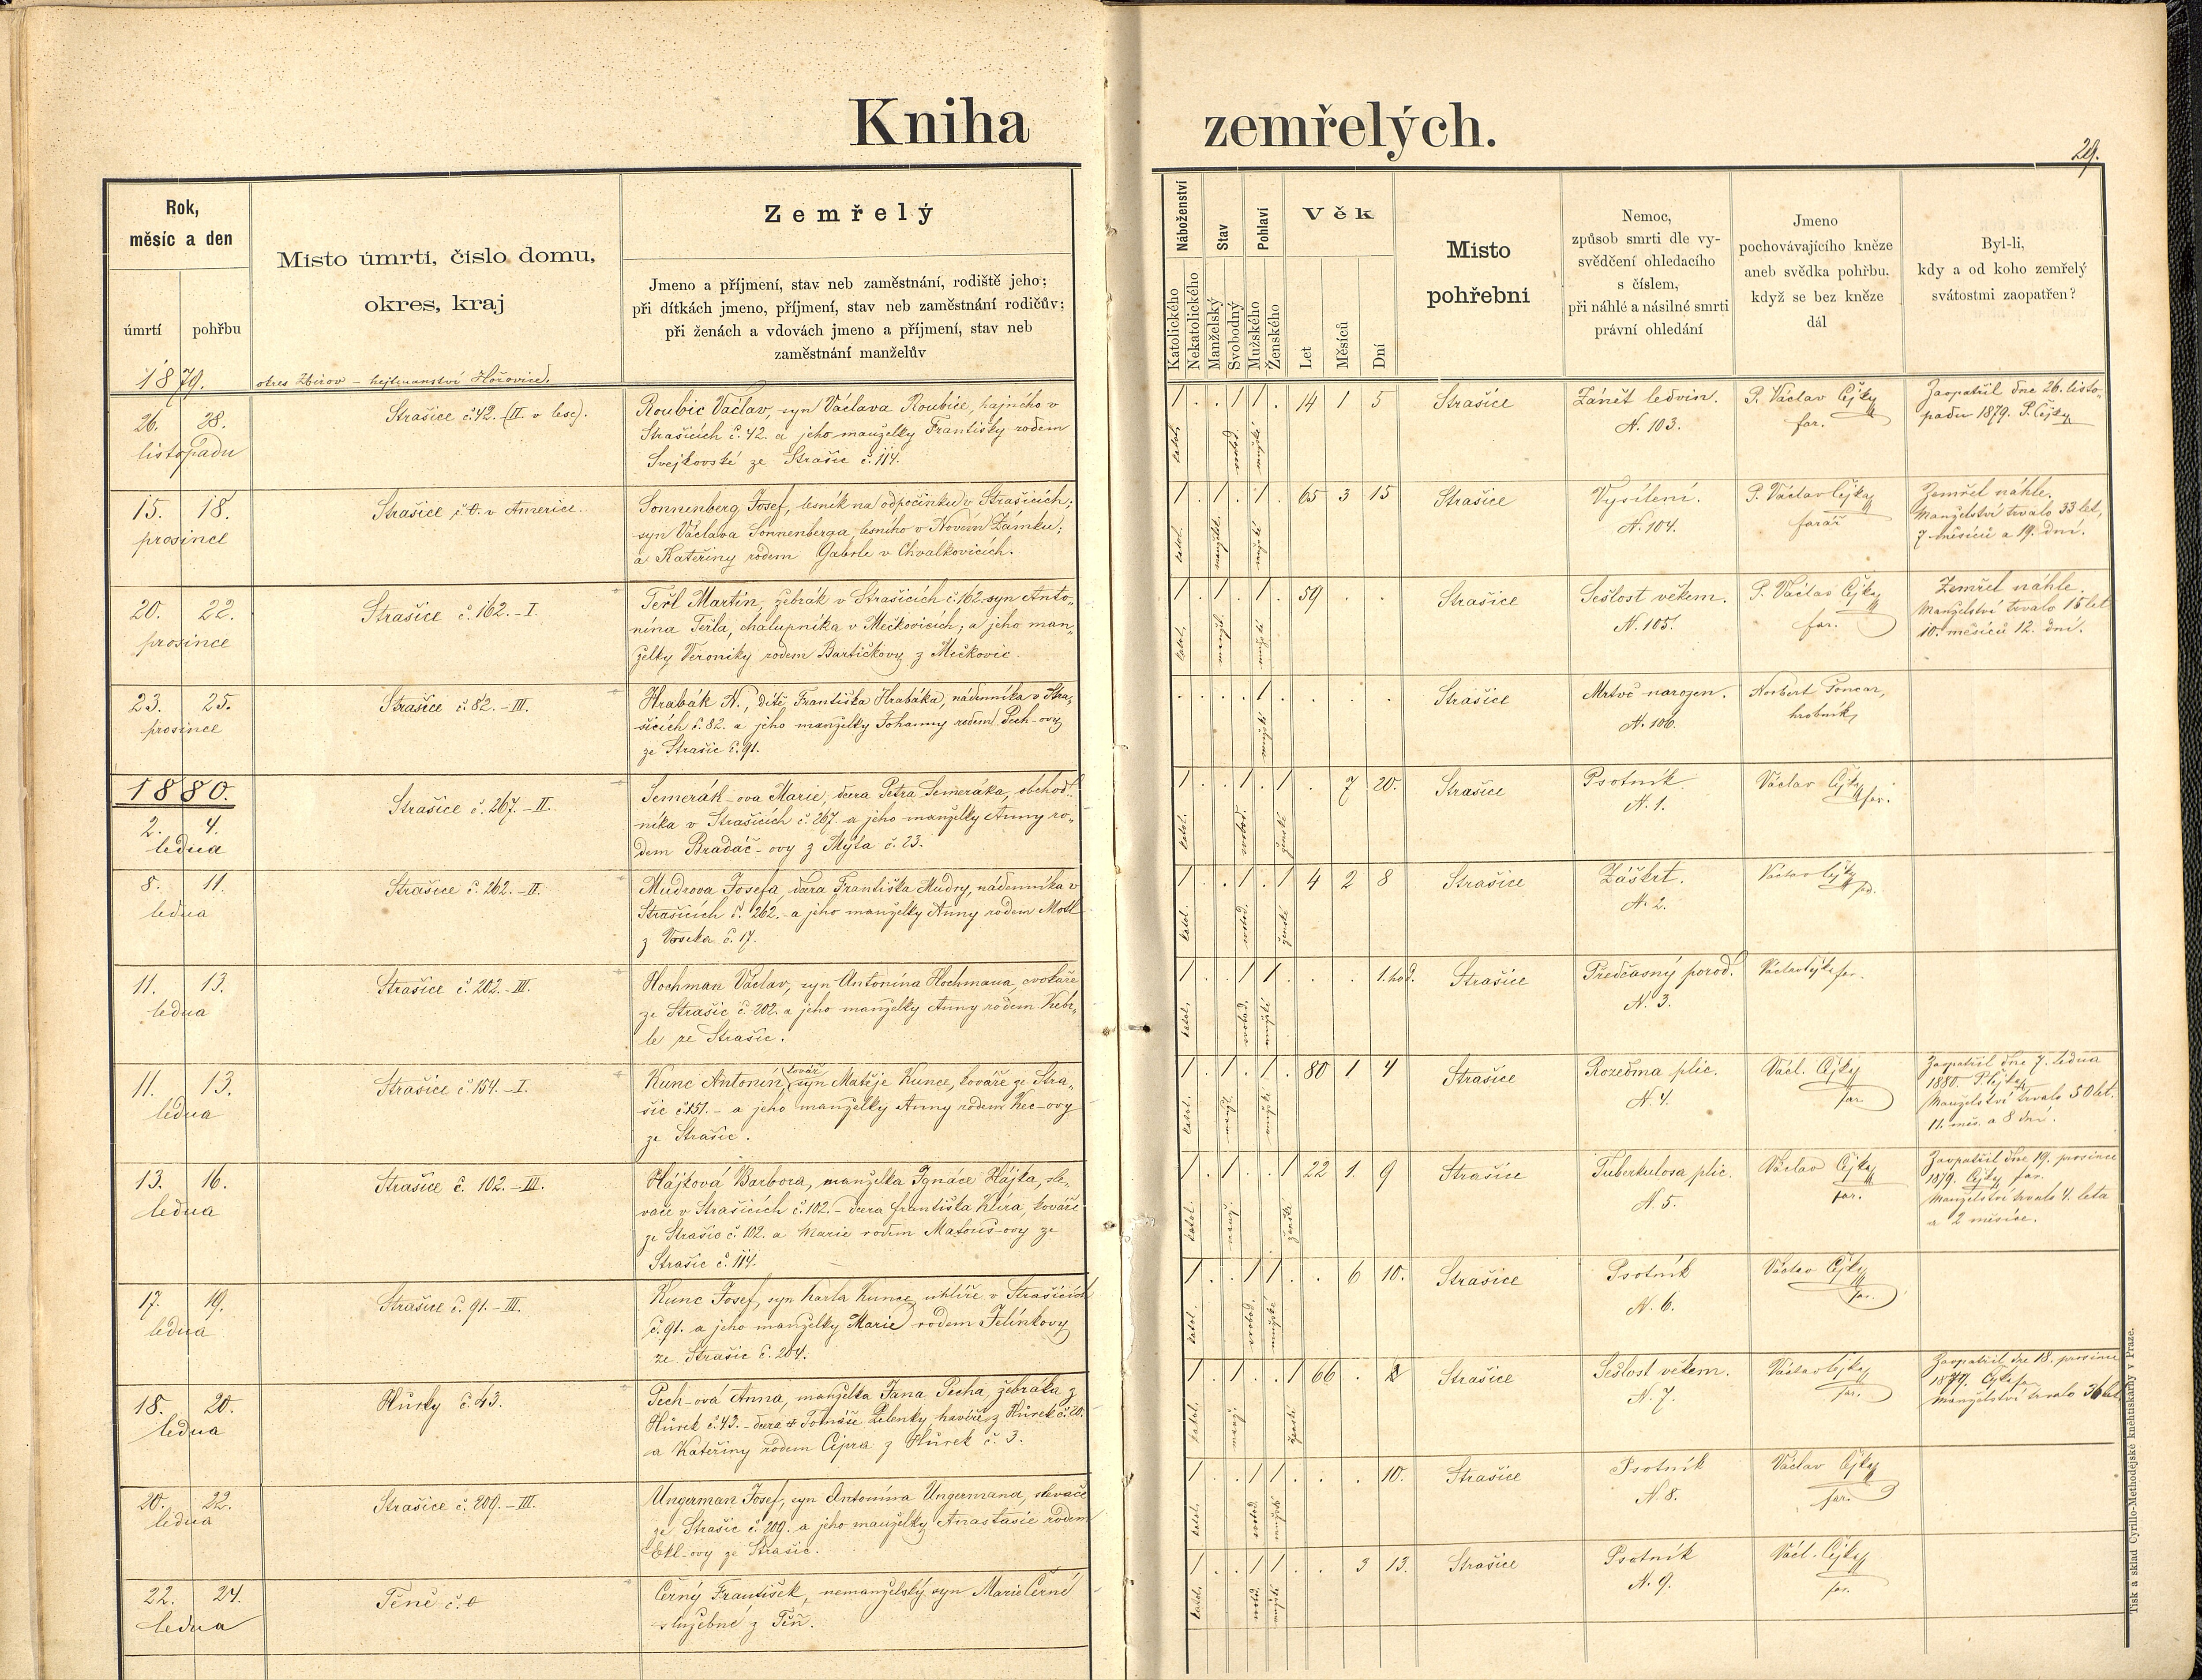 Kniha
zemřelých.
29.
Rok,
měsíc a den
úmrtí
pohřbu
Místo úmrtí, číslo domu,
okres, kraj
Zemřelý
Jmeno a příjmení, stav neb zaměstnání, rodiště jeho;
při dítkách jmeno, příjmení, stav neb zaměstnání rodičův;
při ženách a vdovách jmeno a příjmení, stav neb
zaměstnání manželův
Náboženství
Katolického
Nekatolického
Stav
Manželský
Svobodný
Pohlaví
Mužského
Ženského
Věk
Let
Měsíců
Dní
Místo
pohřební
Nemoc,
způsob smrti dle vy-
svědčení ohledacího
s číslem,
při náhlé a násilné smrti
právní ohledání
Jmeno
pochovávajícího kněze
aneb svědka pohřbu,
když se bez kněze
dál
Byl-li,
kdy a od koho zemřelý
svátostmi zaopatřen?
1879.
okres Zbirov – hejtmanství Hořovice.
26. 28.
listopadu
Strašice č. 42. (II. v lese).
Roubic Václav, syn Václava Roubice, hajného v
Strašicích č. 42. a jeho manželky Františky rodem
Svejkovské ze Strašic č. 114.
1 . . 1 1 . 14 1 5
katol. svobod. mužské
Strašice
Zánět ledvin.
N. 103.
P. Václav Čejka
far.
Zaopatřil dne 26. listo-
padu 1879. P. Čejka
15. 18.
prosince
Strašice č. 0. v Americe.
Sonnenberg Josef, lesník na odpočinku v Strašicích;
syn Václava Sonnenberga, lesního v Novém Zámku;
a Kateřiny rodem Gabrle v Chvalkovicích.
1 . 1 . 1 . 65 3 15
katol. manžels. mužské
Strašice
Vysílení.
N. 104.
P. Václav Čejka
farář
Zemřel náhle.
Manželství trvalo 33 let,
7 měsíců a 19. dní.
20. 22.
prosince
Strašice č. 162. – I.
Teřl Martin, žebrák v Strašicích č. 162. syn Anto-
nína Teřla, chalupníka v Mečkovicích; a jeho man-
želky Veroniky rodem Bartičkovy z Mečkovic.
1 . 1 . 1 . 59 . .
katol. manžel. mužské
Strašice
Sešlost věkem.
N. 105.
P. Václav Čejka
far.
Zemřel náhle.
Manželství trvalo 15 let
10. měsíců 12. dní.
23. 25.
prosince
Strašice č. 82. – III.
Hrabák N., dítě Františka Hrabáka, nádenníka v Stra-
šicích č. 82. a jeho manželky Johanny rodem Pech-ovy
ze Strašic č. 91.
. . . . 1 . . . .
mužské
Strašice
Mrtvě narozen.
N. 106.
Norbert Foncar,
hrobník
1880.
2. 4.
ledna
Strašice č. 267. – II.
Semerák-ova Marie, dcera Petra Semeráka, obchod-
níka v Strašicích č. 267. a jeho manželky Anny ro-
dem Bradáč-ovy z Mýta č. 23.
1 . . 1 . 1 . 7 20.
katol. svobod. ženské
Strašice
Psotník
N. 1.
Václav Čejka
far.
8. 11.
ledna
Strašice č. 262. – II.
Mudrova Josefa, dcera Františka Mudry, nádenníka v
Strašicích č. 262. a jeho manželky Anny rodem Motl
z Voseka č. 17.
1 . . 1 . 1 4 2 8
katol. svobod. ženské
Strašice
Záškrt.
N. 2.
Václav Čejka
far.
11. 13.
ledna
Strašice č. 202. – III.
Hochman Václav, syn Antonína Hochmana, cvokaře
ze Strašic č. 202. a jeho manželky Anny rodem Kebr-
le ze Strašic.
1 . . 1 1 . . . 1. hod.
katol. svobod. mužské
Strašice
Předčasný porod.
N. 3.
Václav Čejka far.
11. 13.
ledna
Strašice č. 154. – I.
Kunc Antonín, kovář syn Matěje Kunce, kováře ze Stra-
šic č. 151. – a jeho manželky Anny rodem Kec-ovy
ze Strašic.
1 . 1 . 1 . 80 1 4
katol. manžel. mužské
Strašice
Rozedma plic.
N. 4.
Václ. Čejka
far
Zaopatřil dne 7. ledna
1880. P. Čejka
Manželství trvalo 50 let.
11. měs. a 8 dní.
13. 16.
ledna
Strašice č. 102. – III.
Hájková Barbora, manželka Ignáce Hájka, sle-
vače v Strašicích č. 102. – dcera Františka Klíra, kováře
ze Strašic č. 102. a Marie rodem Matouš-ovy ze
Strašic č. 114.
1 . 1 . . 1 22 1. 9
katol. manž. ženské
Strašice
Tuberkulosa plic.
N. 5.
Václav Čejka
far.
Zaopatřil dne 19. prosince
1879. Čejka far.
Manželství trvalo 4. leta
a 2 měsíce.
17. 19.
ledna
Strašice č. 91. – III.
Kunc Josef, syn Karla Kunce, uhlíře v Strašicích
č. 91. a jeho manželky Marie rodem Jelínkovy
ze Strašic č. 204.
1 . . 1 1 . . 6 10.
katol. svobod. mužské
Strašice
Psotník
N. 6.
Václav Čejka
far.
18. 20.
ledna
Hůrky č. 43.
Pech-ová Anna, manželka Jana Pecha, žebráka z
Hůrek č. 43. – dcera + Tomáše Zelenky, havíře z Hůrek č. 20.
a Kateřiny rodem Cipra z Hůrek č. 3.
1 . 1 . . 1 66 .
katol. manž. ženské
Strašice
Sešlost věkem.
N. 7.
Václav Čejka
far.
Zaopatřil dne 18. prosince
1879. Čejka
manželství trvalo 36 let
20. 22.
ledna
Strašice č. 209. – III.
Ungerman Josef, syn Antonína Ungermana, slevače
ze Strašic č. 209. a jeho manželky Anastasie rodem
Ekl-ovy ze Strašic.
1 . . 1 1 . . . 10.
katol. svobod. mužské
Strašice
Psotník
N. 8.
Václav Čejka
far.
22. 24.
ledna
Těně č. 0
Černý František, nemanželský syn Marie Černé
služebné z Těň.
1 . . 1 1 . . 3 13.
katol. svobod. mužské
Strašice
Psotník
N. 9.
Václ. Čejka
far.
Tisk a sklad Cyrillo-Methodějské kněhtiskárny v Praze.